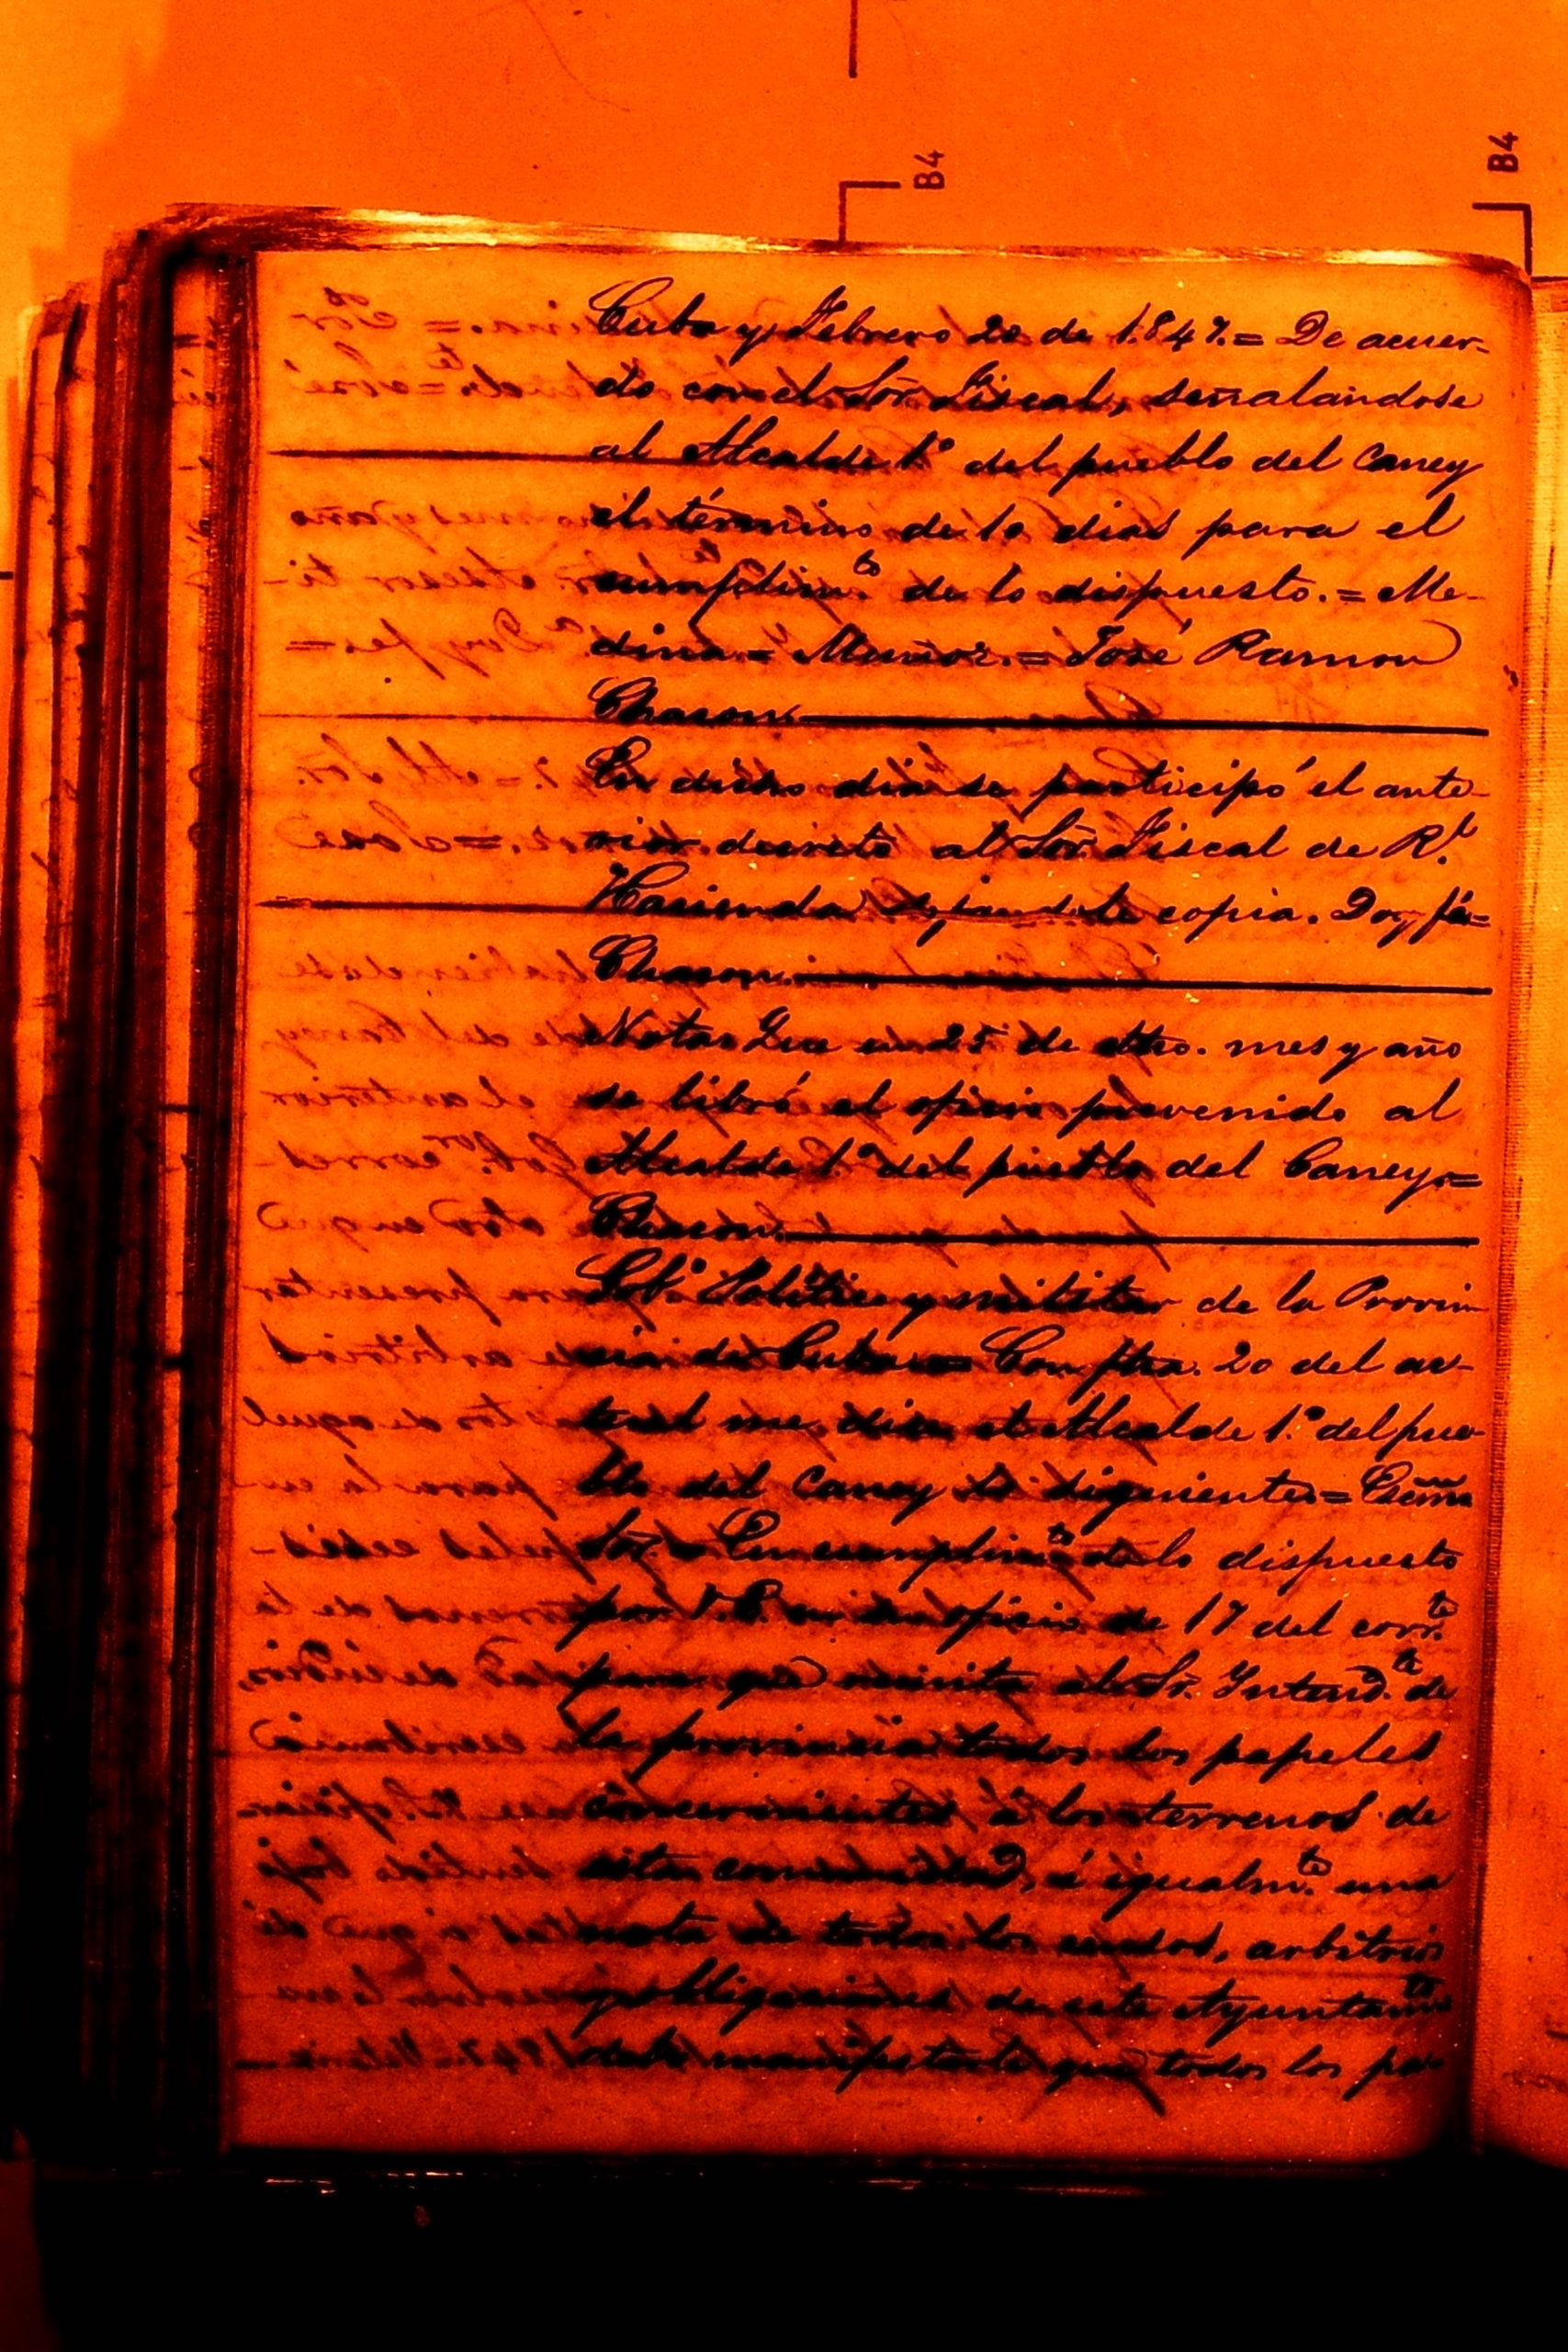 B4
B4
Cuba y Febrero 20 de 1.847.= De acuer-
do con el Sõr Fiscal, señalandose
al Alcalde 1º del pueblo del Caney
el término de 10 dias para el
cumplim.to de lo dispuesto.= Me-
dina.= Muñoz.= José Ramon
Chacon.
En dicho dia se participó el ante-
rior decreto al Sõr. Fiscal de R.l
Hacienda dejandole copia. Doy fé=
Chacon.
Nota= Que en 25 de dho. mes y año
se libró el oficio prevenido al
Alcalde 1º del pueblo del Caney.=
Chacon.
Gob.º Politico y militar de la Provin
cia de Cuba.= Con fha. 20 del ac-
tual me dice el Alcalde 1.º del pue-
blo del Caney lo siguiente= Escmo
Sor.= En cumplim.to de lo dispuesto
por V.E. en su oficio de 17 del corr.te
para que remita al Sr. Intend.te de
la provincia todos los papeles
concernientes á los terrenos de
esta comunidad, é igualm.te una
nota de todos los censos, arbitrios
y obligaciones de este Ayuntam.to
debo manifestarle que todos los pa-